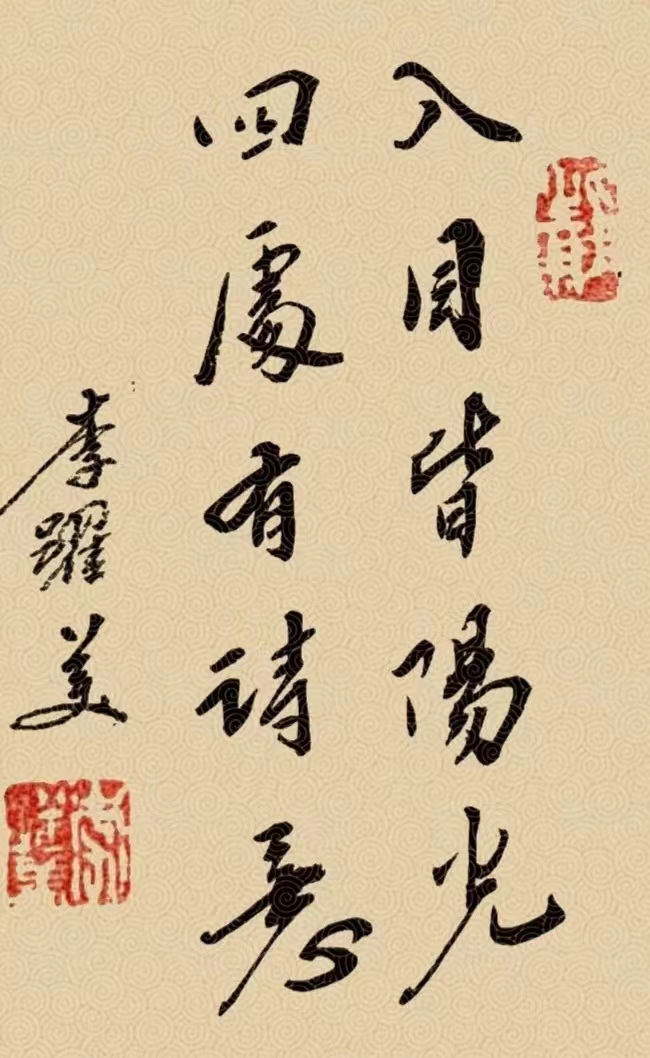 入目皆陽光
四處有詩意
李躍美